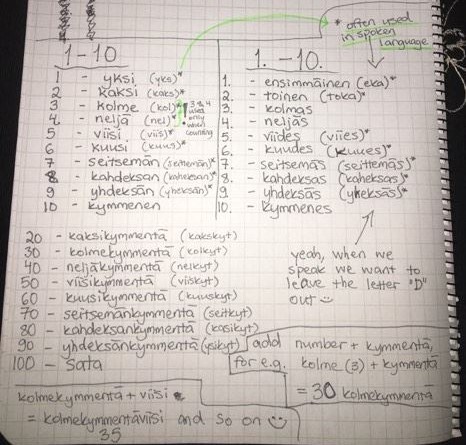 * often used
in spoken
language
1-10
1 - yksi (yks)*
2 - kaksi (kaks)*
3 - kolme (kol)*
4 - neljä (nel)*
! 3 & 4
used
only
when
counting
5 - viisi (viis)*
6 - kuusi (kuus)*
7 - seitsemän (seitemän)*
8 - kahdeksan (kaheksan)*
9 - yhdeksän (yheksän)*
10 - kymmenen
1. -10.
1. - ensimmäinen (eka)*
2. - toinen (toka)*
3. - kolmas
4. - neljäs
5. - viides (viies)*
6. - kuudes (kuues)*
7 - seitsemäs (seittemäs)*
8. - kahdeksas (kaheksas)*
9 - yhdeksäs (yheksäs)*
10. - kymmenes
yeah, when we
speak we want to
leave the letter "D"
out
20 - kaksikymmentä (kakskyt)
30 - kolmekymmentä (kolkyt)
40 - neljäkymmentä (nelkyt)
50 - viisikymmentä (viiskyt)
60 - kuusikymmentä (kuuskyt)
70 - seitsemänkymmentä (seitkyt)
80 - kahdeksankymmentä (kasikyt)
90 - yhdeksänkymmentä (ysikyt)
100 - sata
add number + kymmentä,
for e.g. kolme (3) + kymmentä
= 30 kolmekymmentä
kolmekymmentä + viisi
= kolmekymmentäviisi and so on
35